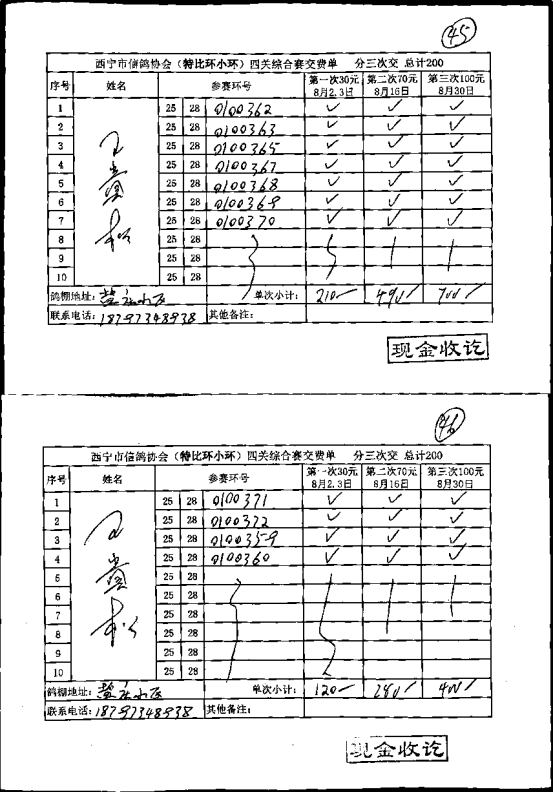 45
西宁市信鸽协会（特比环小环）四关综合赛交费单 分三次交 总计200
序号 姓名 参赛环号 第一次30元 8月2.3日 第二次70元 8月16日 第三次100元 8月30日
1 25 28 0100362 ✓ ✓ ✓
2 25 28 0100363 ✓ ✓ ✓
3 25 28 0100365 ✓ ✓ ✓
4 25 28 0100367 ✓ ✓ ✓
5 25 28 0100368 ✓ ✓ ✓
6 25 28 0100369 ✓ ✓ ✓
7 25 28 0100370 ✓ ✓ ✓
8 25 28
9 25 28
10 25 28
鸽棚地址： 小区 单次小计： 210 490 700
联系电话：18797348938 其他备注：
现金收讫
46
西宁市信鸽协会（特比环小环）四关综合赛交费单 分三次交 总计200
序号 姓名 参赛环号 第一次30元 8月2.3日 第二次70元 8月16日 第三次100元 8月30日
1 25 28 0100371 ✓ ✓ ✓
2 25 28 0100372 ✓ ✓ ✓
3 25 28 0100359 ✓ ✓ ✓
4 25 28 0100360 ✓ ✓ ✓
5 25 28
6 25 28
7 25 28
8 25 28
9 25 28
10 25 28
鸽棚地址： 小区 单次小计： 120 280 400
联系电话：18797348938 其他备注：
现金收讫